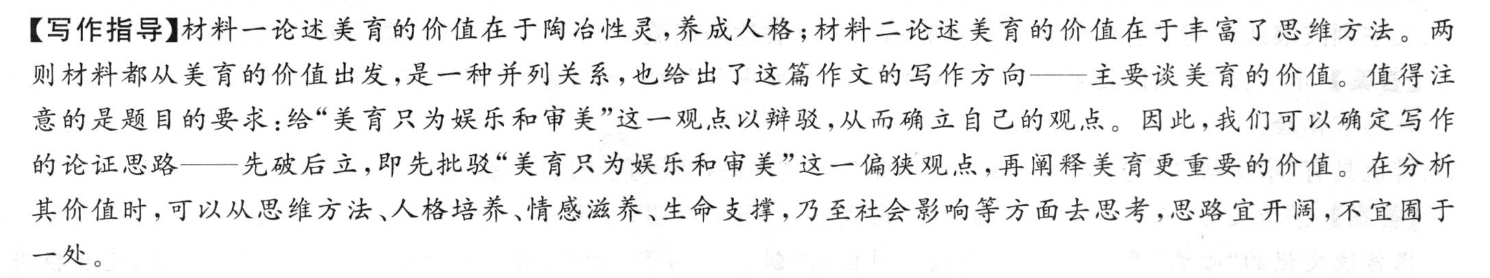 【写作指导】材料一论述美育的价值在于陶冶性灵,养成人格;材料二论述美育的价值在于丰富了思维方法。两
则材料都从美育的价值出发,是一种并列关系,也给出了这篇作文的写作方向——主要谈美育的价值。值得注
意的是题目的要求:给“美育只为娱乐和审美”这一观点以辩驳,从而确立自己的观点。因此,我们可以确定写作
的论证思路——先破后立,即先批驳“美育只为娱乐和审美”这一偏狭观点,再阐释美育更重要的价值。在分析
其价值时,可以从思维方法、人格培养、情感滋养、生命支撑,乃至社会影响等方面去思考,思路宜开阔,不宜囿于
一处。